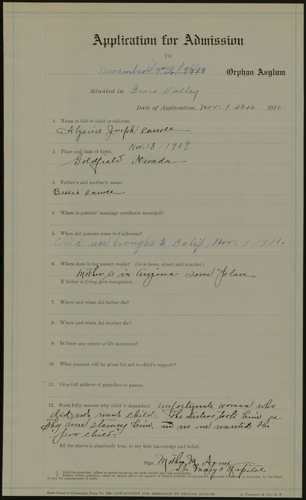 Application for Admission
TO
November
Orphan Asylum
Situated in Grass Valley
Date of Application, Nov. 1 1910
1. Name in full of child or children.
Joseph
2. Place and date of birth. Nov. 18 - 1909
Goldfield Nevada
3. Father's and mother's name.
Bessie
4. Where is parents' marriage certificate recorded?
5. When did parents come to California?
Child was brought to Calif. Nov. 1 1910
6. Where does living parent reside? (Give town, street and number.)
Mother is in Arizona some place
If father is living give occupation
7. Where and when did father die?
8. Where and when did mother die?
9. Is there any estate or life insurance?
10. What amount will be given for aid to child's support?
11. Give full address of guardian or parent.
12. State fully reasons why child is dependent: unfortunate woman who
did not want child. The sisters took him as
they were starving him, and no one wanted the
poor child.
All the above is absolutely true, to my best knowledge and belief.
Sign, Mother M. Agnes
St. Mary's Hospital